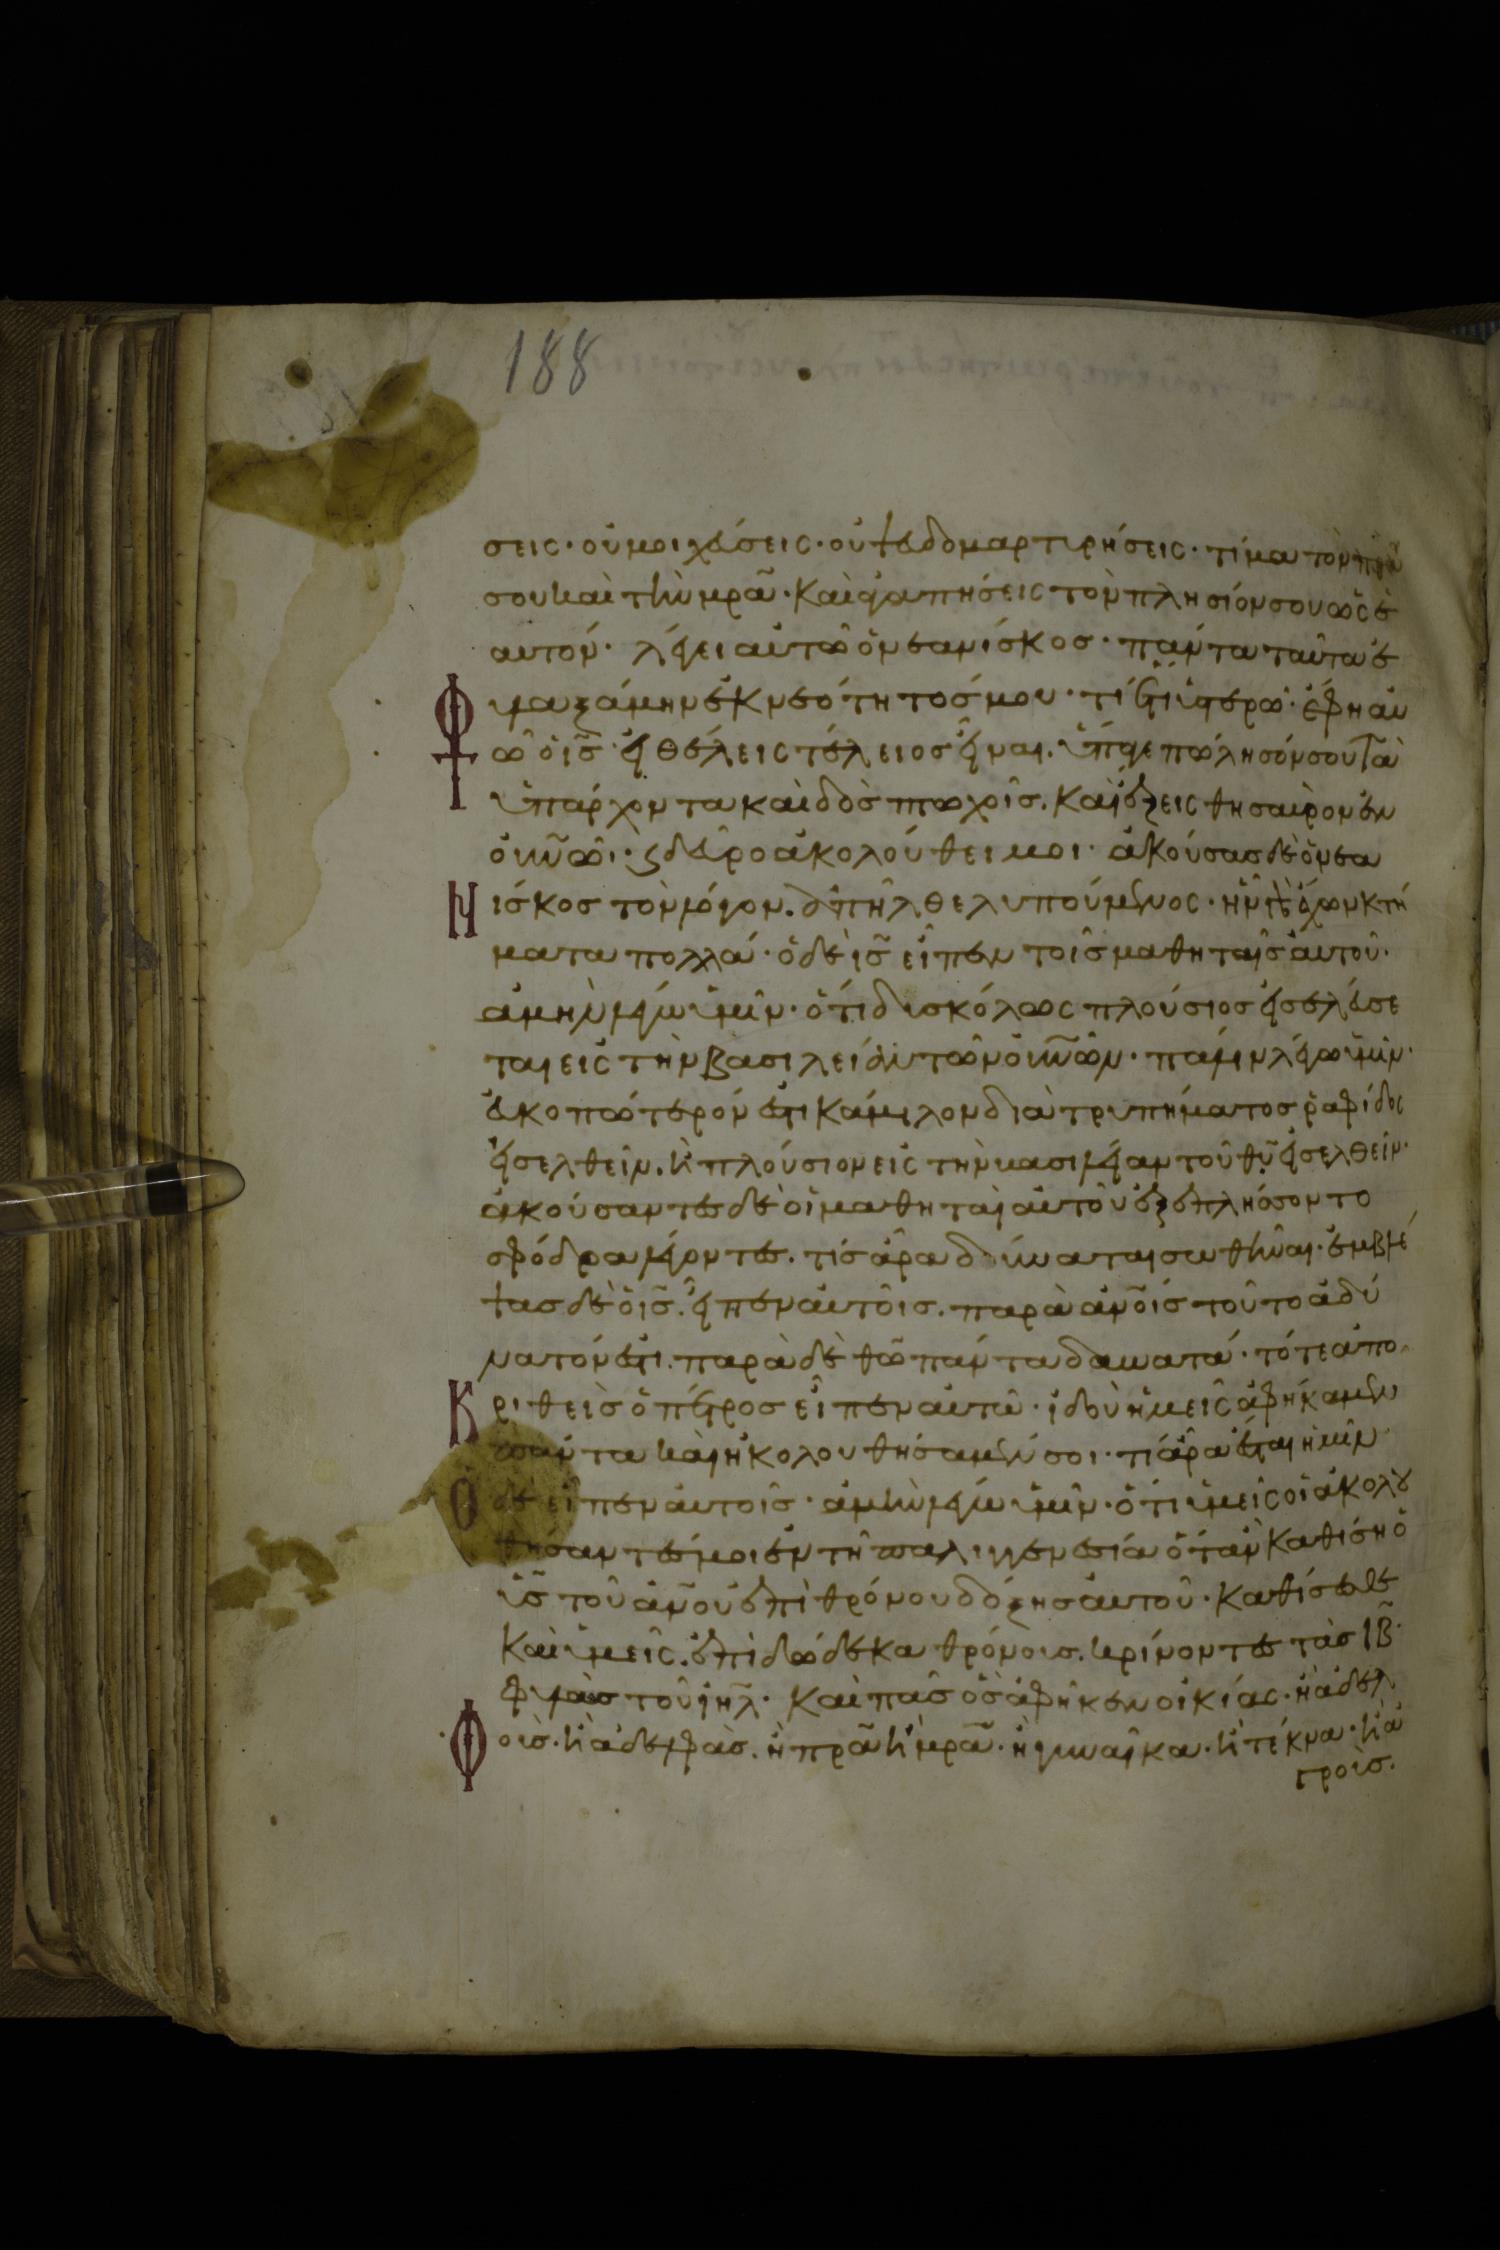 188
σεις· οὐ μοιχεύσεις· οὐ ψευδομαρτυρήσεις· τίμα τὸν πρ̅α
σου καὶ τὴν μρ̅α· Καὶ ἀγαπήσεις τὸν πλησίον σου ὡς σε
αυτόν· λέγει αὐτῶ ὁ νεανίσκος· πάντα ταῦτα ἐ
Φυλαξάμην ἐκ νεότητος μου· τί ἔτι ὑστερῶ· ἔφη αὐ
Τῶ ὁ ι̅ς̅· εἰ θέλεις τέλειος εἶναι. ὕπαγε πώλησόν σου τὰ
ὑπάρχοντα καὶ δὸς πτωχοῖς. Καὶ ἕξεις θησαυρὸν ἐν
οὐν̅ῶι· ϛ δεῦρο ἀκολούθει μοι· ἀκούσας δὲ ὁ νεα
Νίσκος τὸν λόγον. ἀπῆλθε λυπούμενος· ἦν γὰρ ἔχων κτή
ματα πολλά· ὁ δὲ ι̅ς̅ εἶπεν τοῖς μαθηταῖς αὐτοῦ·
ἀμὴν λέγω ὑμῖν· ὅτι δυσκόλως πλούσιος εἰσελεύσε
ται εἰς τὴν βασιλείαν τῶν οὐν̅ῶν· πάλιν λέγω ὑμῖν·
εὐκοπώτερόν ἐστι κάμιλον διὰ τρυπήματος ῥαφίδος
εἰσελθεῖν. ἢ πλούσιον εἰς τὴν βασιλείαν τοῦ θ̅υ̅ εἰσελθεῖν·
ἀκούσαντες δὲ οἱ μαθηταὶ αὐτοῦ ἐξεπλήσσοντο
σφόδρα λέγοντες. τίς ἄρα δύναται σωθῆναι· ἐμβλέ
ψας δὲ ὁ ι̅ς̅. εἶπεν αὐτοῖς. παρὰ ἀν̅οις τοῦτο ἀδύ
νατόν ἐστι. παρὰ δὲ θ̅ω̅ πάντα δυνατά· τότε ἀπο
Κριθεὶς ὁ πέτρος εἶπεν αὐτῶ· ἰδοὺ ἡμεῖς ἀφήκαμεν
πάντα καὶ ἠκολουθήσαμέν σοι· τί ἄρα ἔσται ἡμῖν·
Ὁ δὲ εἶπεν αὐτοῖς· ἀμὴν λέγω ὑμῖν· ὅτι ὑμεῖς οἱ ἀκολου
θήσαντές μοι ἐν τῆ παλιγγενεσία ὅταν καθίση ὁ
υ̅ς̅ τοῦ ἀν̅ου ἐπὶ θρόνου δόξης αὐτοῦ· Καθίσεσθε
Καὶ ὑμεῖς. ἐπὶ δώδεκα θρόνοις. κρίνοντες τὰς ιβ̅·
φυλὰς τοῦ ιη̅λ· Καὶ πᾶς ὃς ἀφῆκεν οἰκίας· ἢ ἀδελ
Φοὺς· ἢ ἀδελφὰς. ἢ πρ̅α ἢ μρ̅α· ἢ γυναῖκα· ἢ τέκνα· ἢ ἀ
γροὺς.